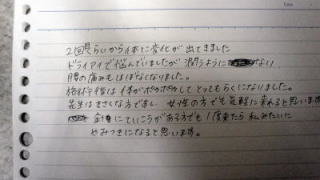 2回目ぐらいから体に変化が出てきました
ドライアイで悩んでいましたが 潤うように ない
腰の痛みもほぼなくなりました。
施術後は 体がポカポカして とってもらくになりました。
先生はきさくな方ですし 女性の方でも気軽に来れると思います
針にていこうがある方でも 1度来たら 私みたいに
やみつきになると思います。